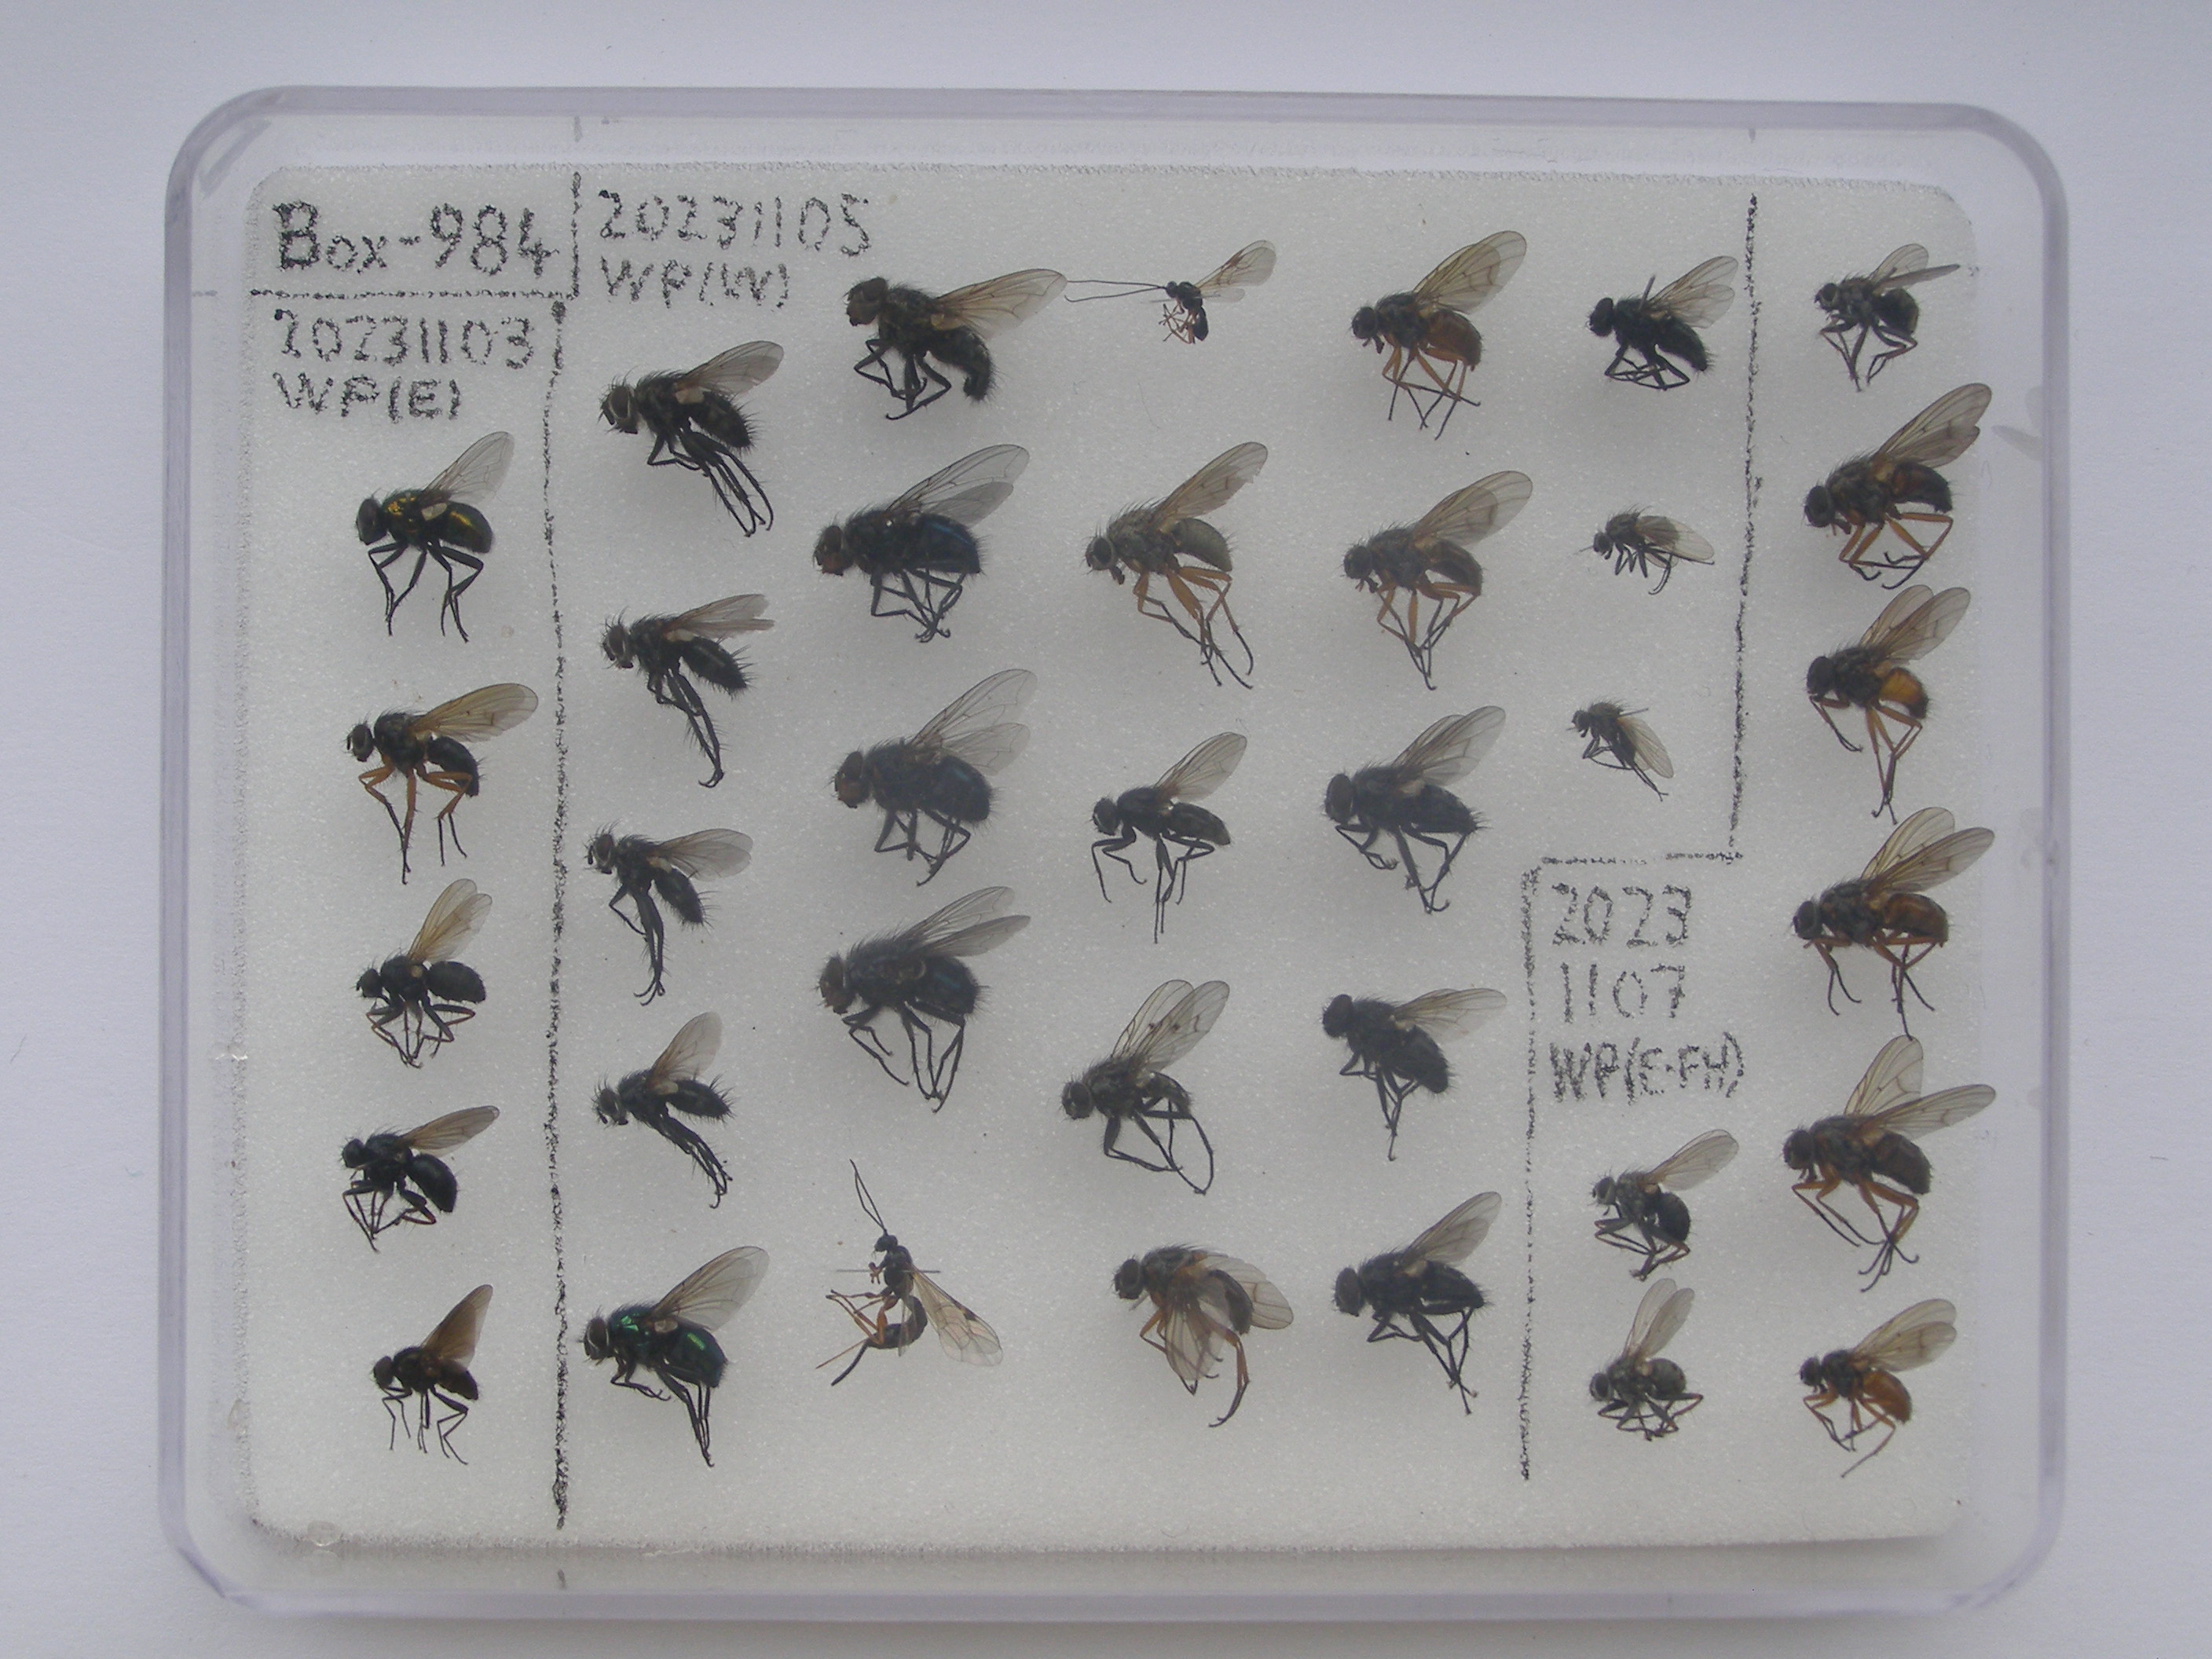 Box-984
20231103
WP(E)
20231105
WP(W)
2023
1107
WP(E·FH)